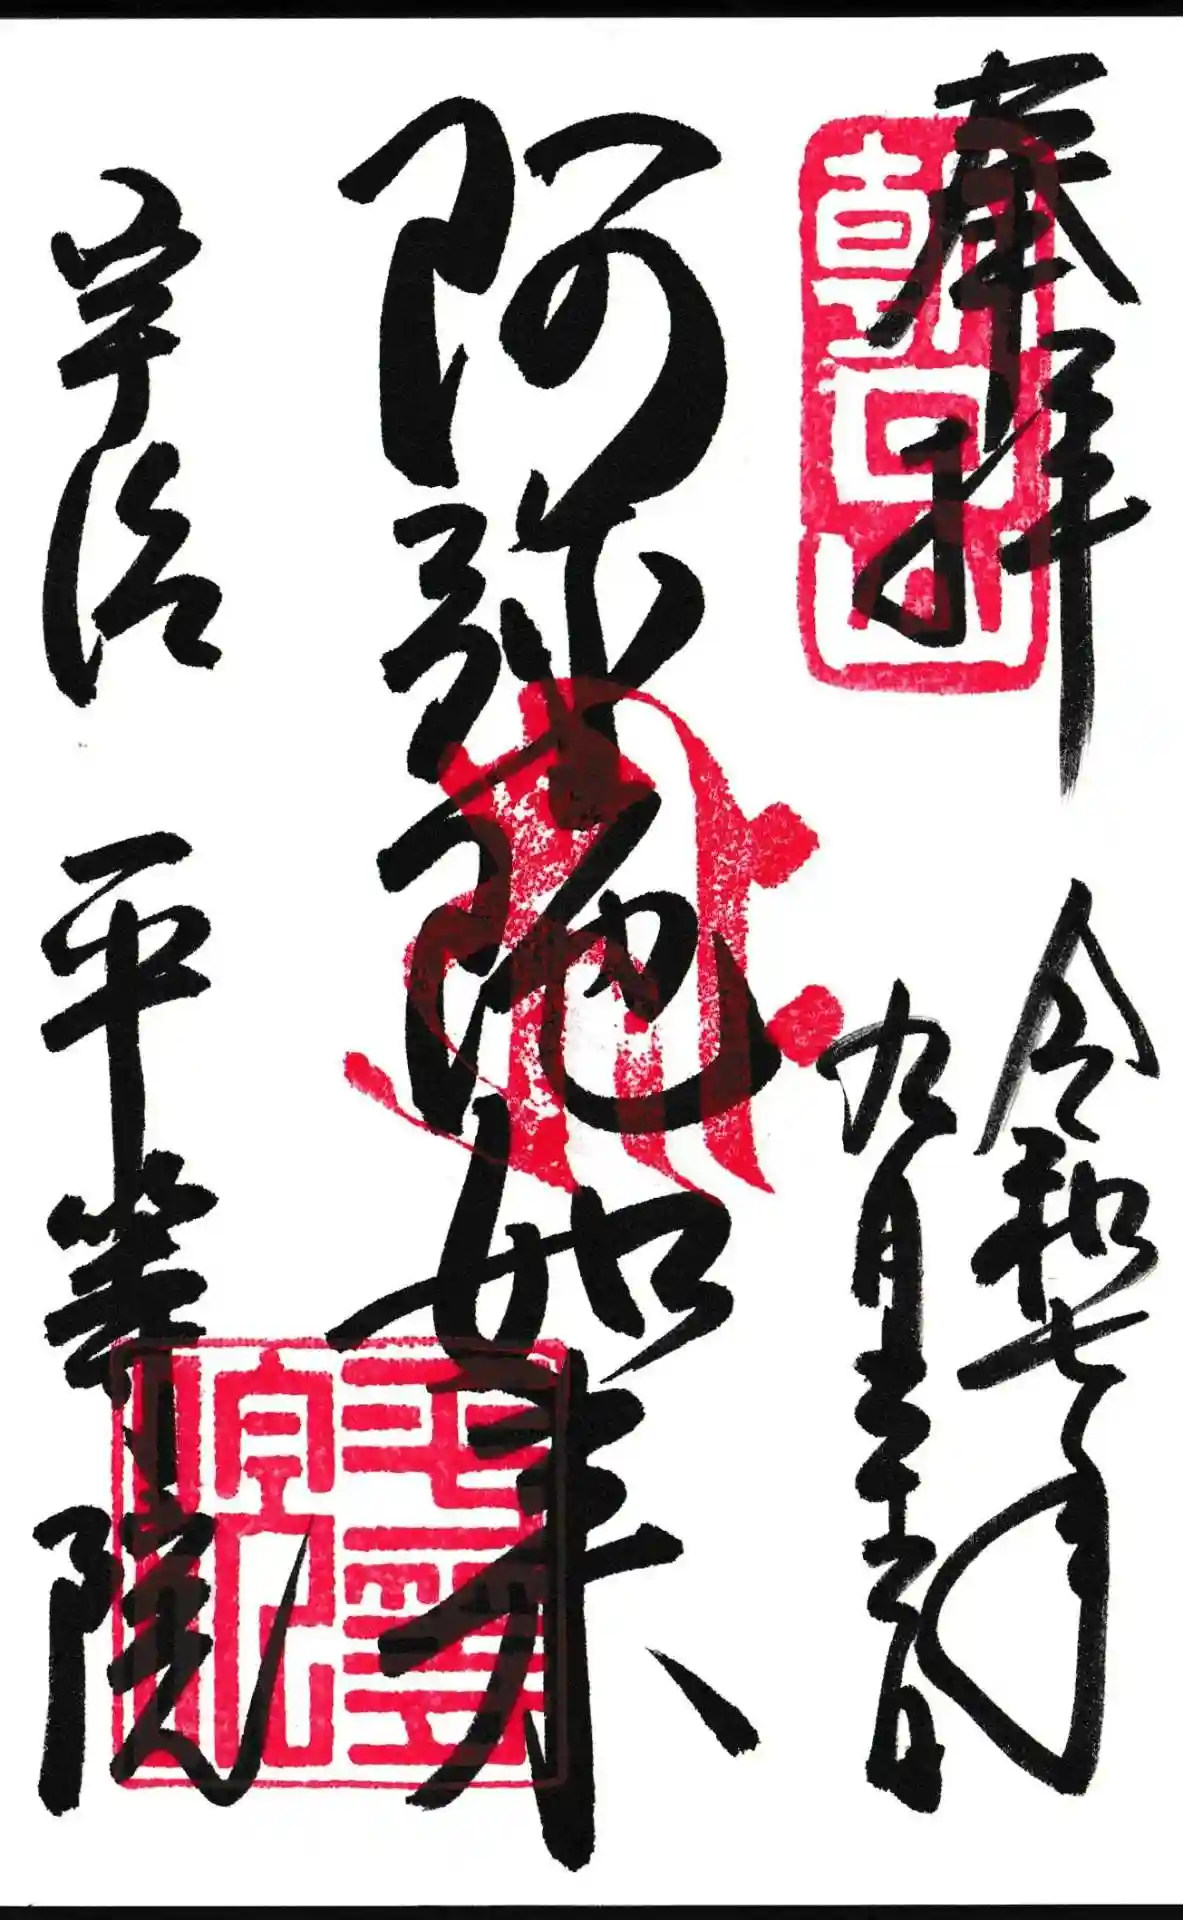 朝日山
奉拝
令和七年
九月二十二日
阿弥陀如来
宇治 平等院